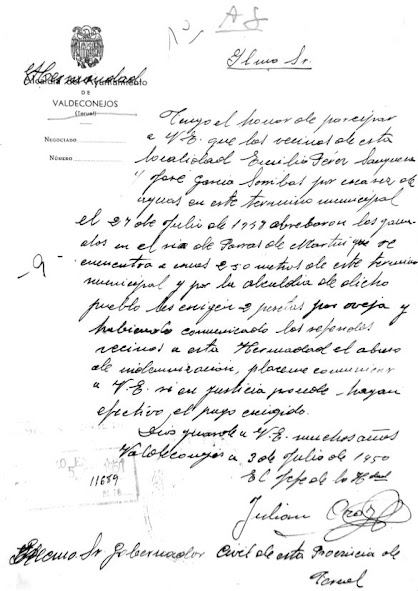 A J
Ilmo Sr.
Hermandad
Alcaldía del Ayuntamiento
DE
VALDECONEJOS
(Teruel)
NEGOCIADO
NÚMERO
Tengo el honor de parcipar
a V.E. que los vecinos de esta
localidad Emilio Perez
y José Garcia por escasez de
aguas en este termino municipal
el 27 de Julio de abrebaron los gana
dos en el ria de Parras de Martin que se
encuentra a unos 250 metros de este termino
municipal y por la alcaldia de dicho
pueblo les exigen 2 pesetas por oveja y
habiendo comunicado los referidos
vecinos a esta Hermadad el abuso
de indemnización, placeme comunicar
a V.E. si en Justicia procede hagan
efectivo el pago exigido.
Dios guarde a V.E. muchos años
Valdeconejos a 3 de Julio de 1950
El Jefe de la Hdad
Julian
-9-
11659
Sr Gobernador Civil de esta Provincia de
Teruel